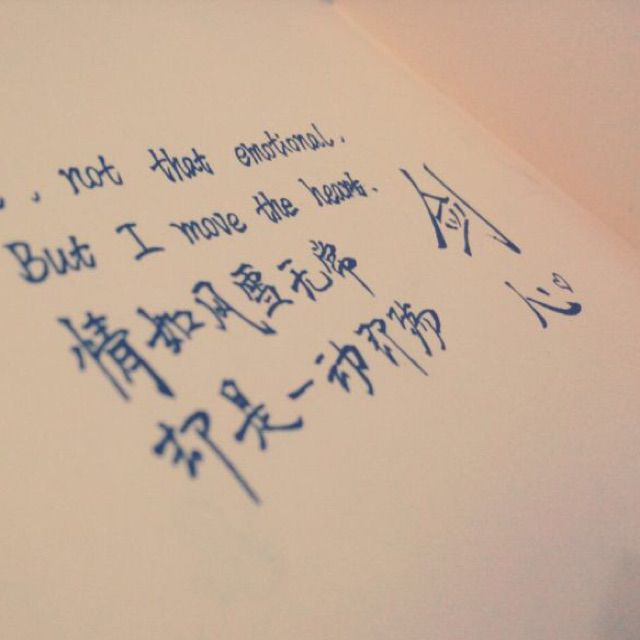 , not that emotional.
But I move the heart.
情如风雪无常
却是一动即殇
剑
心。